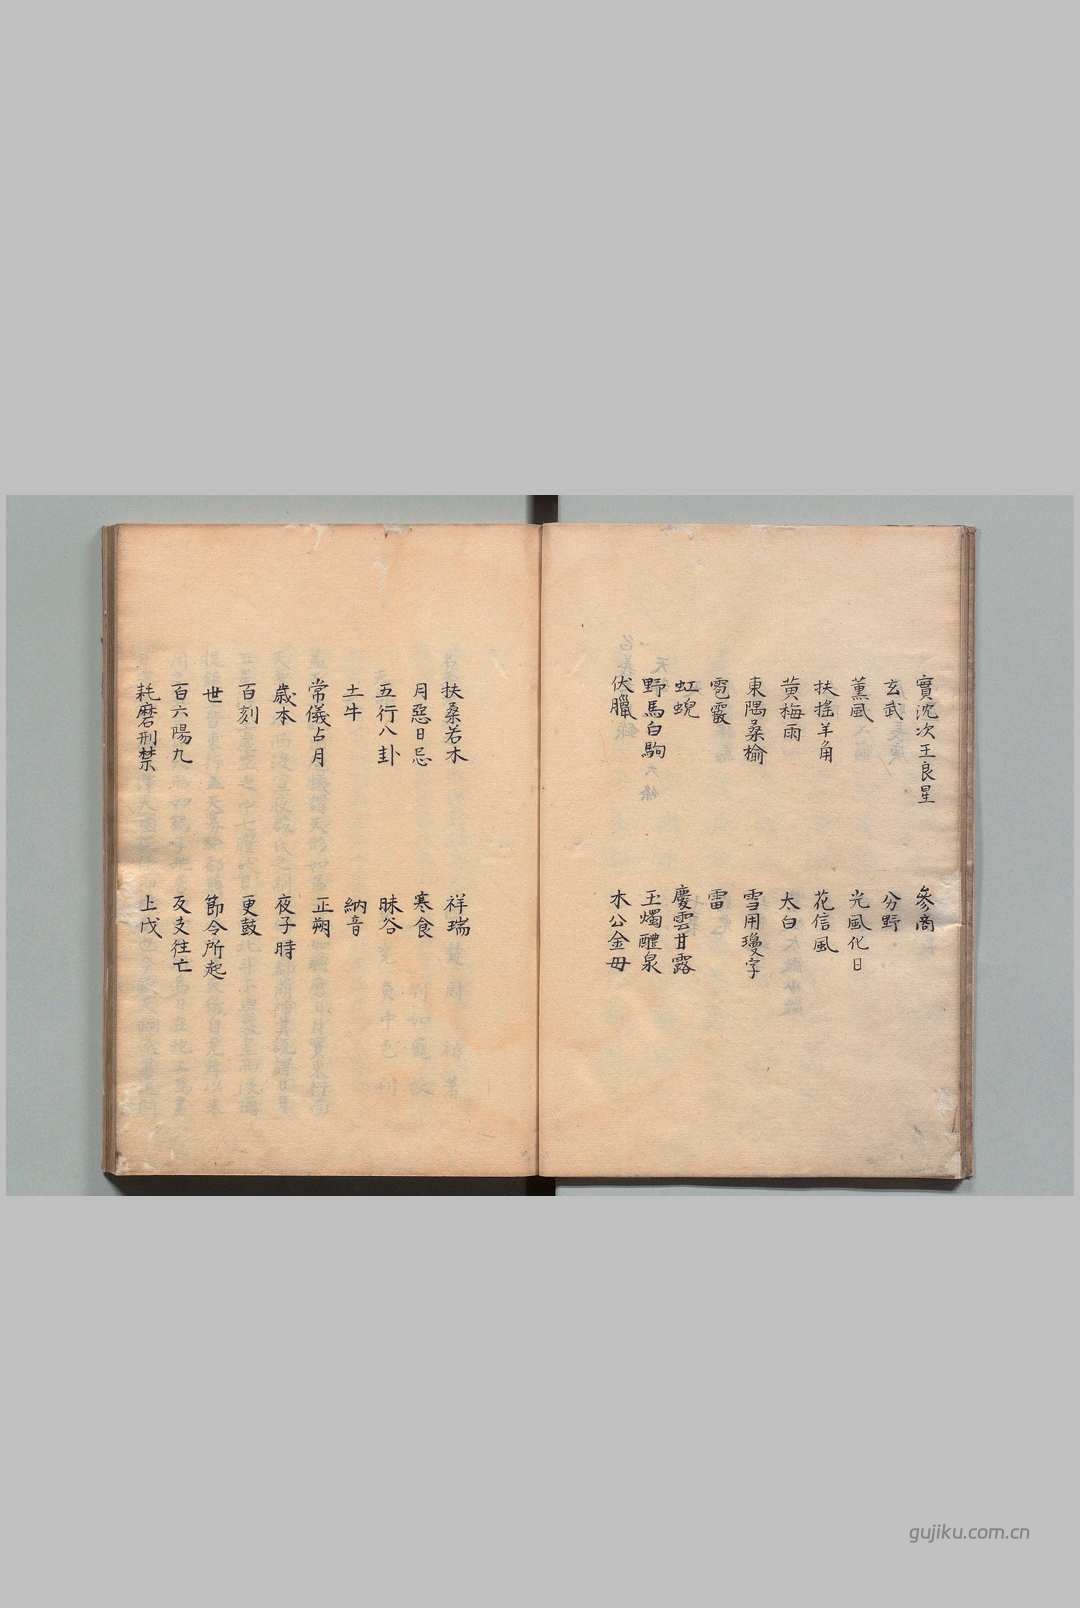 實沈次王良星　參商
玄武　分野
薰風　光風化日
扶搖羊角　花信風
黃梅雨　太白
東隅桑榆　雪用瓊字
雹霰　雷
虹蜺　慶雲甘露
野馬白駒　玉燭醴泉
伏臘　木公金母
扶桑若木　祥瑞
月惡日忌　寒食
五行八卦　昧谷
土牛　納音
常儀占月　正朔
歲本　夜子時
百刻　更鼓
世　節令所起
百六陽九　反支往亡
耗磨刑禁　上戊
gujiku.com.cn